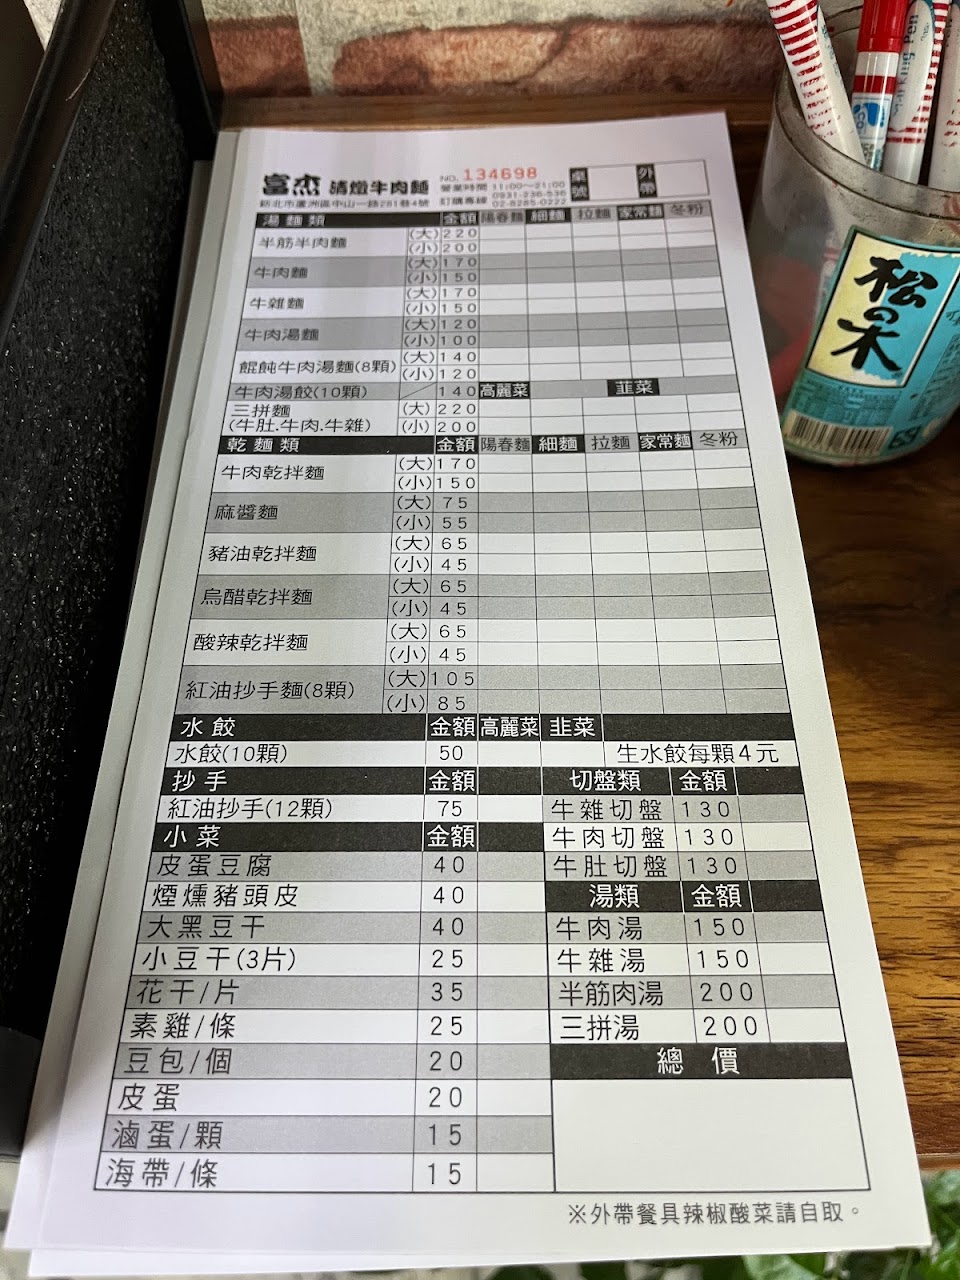 富杰 清燉牛肉麵 NO. 134698 桌號 外帶
新北市蘆洲區中山一路281巷4號 營業時間 11:00~21:00
訂購專線 0931-236-536
02-8285-0222
湯麵類 金額 陽春麵 細麵 拉麵 家常麵 冬粉
半筋半肉麵 (大) 220
(小) 200
牛肉麵 (大) 170
(小) 150
牛雜麵 (大) 170
(小) 150
牛肉湯麵 (大) 120
(小) 100
餛飩牛肉湯麵(8顆) (大) 140
(小) 120
牛肉湯餃(10顆) 140 高麗菜 韭菜
三拼麵 (大) 220
(牛肚.牛肉.牛雜) (小) 200
乾麵類 金額 陽春麵 細麵 拉麵 家常麵 冬粉
牛肉乾拌麵 (大) 170
(小) 150
麻醬麵 (大) 75
(小) 55
豬油乾拌麵 (大) 65
(小) 45
烏醋乾拌麵 (大) 65
(小) 45
酸辣乾拌麵 (大) 65
(小) 45
紅油抄手麵(8顆) (大) 105
(小) 85
水餃 金額 高麗菜 韭菜
水餃(10顆) 50 生水餃每顆4元
抄手 金額 切盤類 金額
紅油抄手(12顆) 75 牛雜切盤 130
小菜 金額 牛肉切盤 130
皮蛋豆腐 40 牛肚切盤 130
煙燻豬頭皮 40 湯類 金額
大黑豆干 40 牛肉湯 150
小豆干(3片) 25 牛雜湯 150
花干/片 35 半筋肉湯 200
素雞/條 25 三拼湯 200
豆包/個 20 總價
皮蛋 20
滷蛋/顆 15
海帶/條 15
※外帶餐具辣椒酸菜請自取。
松の木